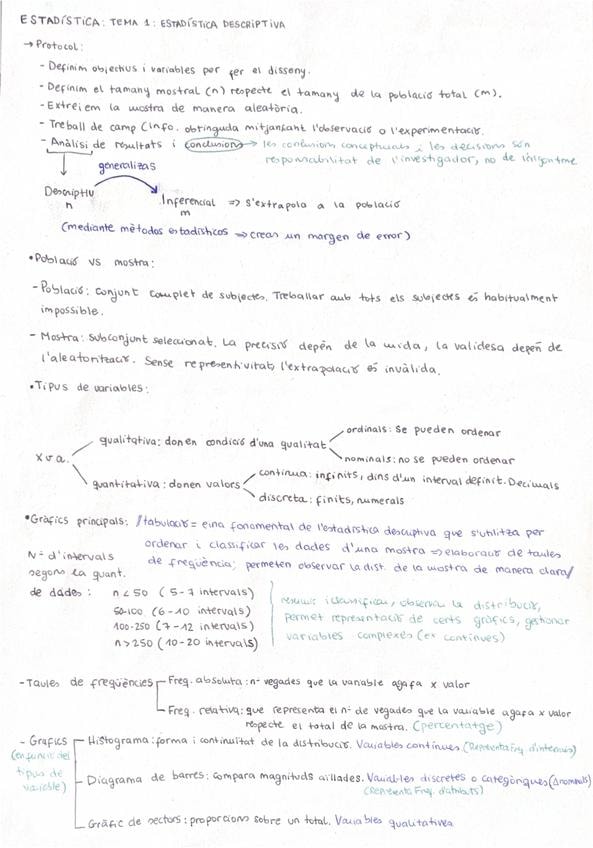 ESTADÍSTICA: TEMA 1: ESTADÍSTICA DESCRIPTIVA
→ Protocol:
- Definim objectius i variables per fer el disseny.
- Definim el tamany mostral (n) respecte el tamany de la població total (m).
- Extreiem la mostra de manera aleatòria.
- Treball de camp (info. obtinguda mitjançant l'observació o l'experimentació.
- Anàlisi de resultats i conclusions → les conclusions conceptuals i les decisions són
responsabilitat de l'investigador, no de
generalitzas
Descriptiu
n
Inferencial ⇒ s'extrapola a la població
m
(mediante métodos estadísticos ⇒ creas un margen de error)
• Població vs mostra:
- Població: conjunt complet de subjectes. Treballar amb tots els subjectes és habitualment
impossible.
- Mostra: subconjunt seleccionat. La precisió depèn de la mida, la validesa depèn de
l'aleatorització. Sense representivitat, l'extrapolació és invàlida.
• Tipus de variables:
ordinals: se pueden ordenar
qualitativa: donen condició d'una qualitat
nominals: no se pueden ordenar
x v a.
continua: infinits, dins d'un interval definit. Decimals
quantitativa: donen valors
discreta: finits, numerals
• Gràfics principals: /tabulació = eina fonamental de l'estadística descriptiva que s'utilitza per
ordenar i classificar les dades d'una mostra ⇒ elaboració de taules
de freqüència; permeten observar la dist. de la mostra de manera clara/
Nº d'intervals
segons la quant.
de dades:
n < 50 (5-7 intervals)
50-100 (6-10 intervals)
100-250 (7-12 intervals)
n > 250 (10-20 intervals)
resumir i classificar, observar la distribució,
permet representació de certs gràfics, gestionar
variables complexes (ex continues)
- Taules de freqüències
Freq. absoluta: nº vegades que la variable agafa x valor
Freq. relativa: que representa el nº de vegades que la variable agafa x valor
respecte el total de la mostra. (percentatge)
- Gràfics
(en funció del
tipus de
variable)
Histograma: forma i continuïtat de la distribució. Variables contínues (Representa freq. d'intervals)
Diagrama de barres: compara magnituds aïllades. Variables discretes o categòriques (nominals)
(Representa Freq. d'atributs)
Gràfic de sectors: proporcions sobre un total. Variables qualitatives